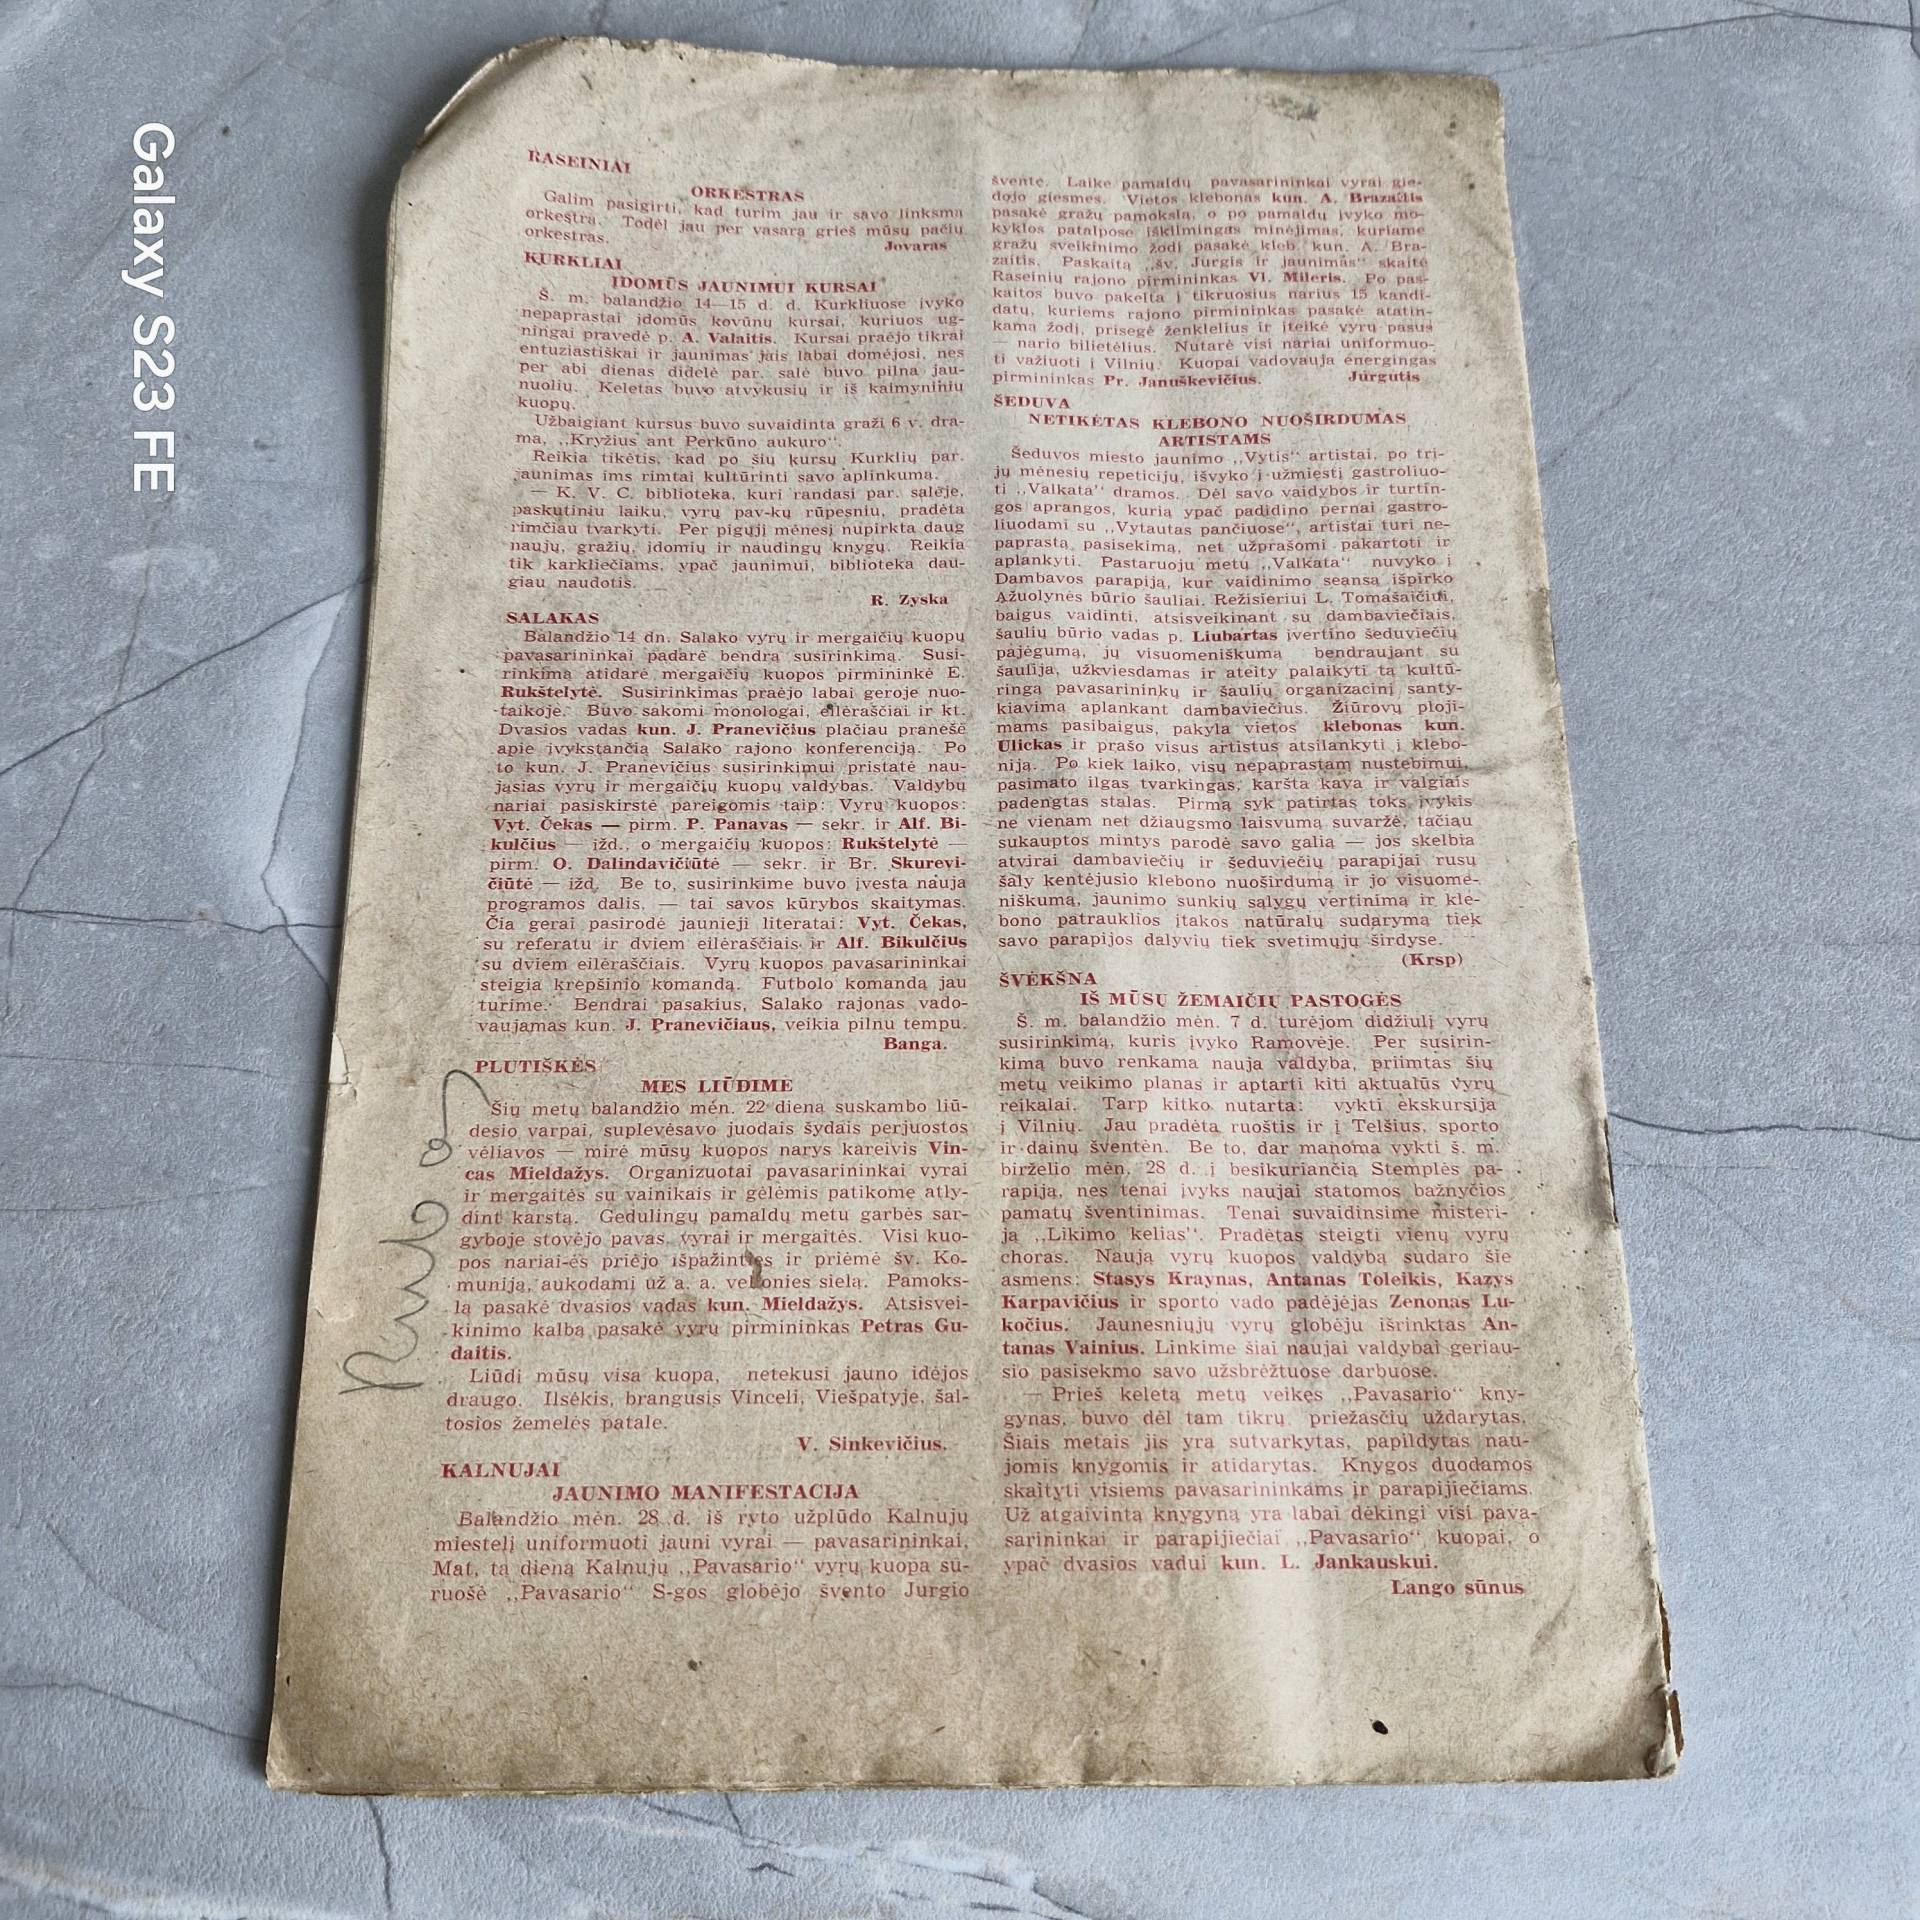 RASEINIAI
ORKESTRAS
Galim pasigirti, kad turim jau ir savo linksmą
orkestrą. Todėl jau per vasarą grieš mūsų pačių
orkestras.
Jovaras
KURKLIAI
ĮDOMŪS JAUNIMUI KURSAI
Š. m. balandžio 14—15 d. d. Kurkliuose įvyko
nepaprastai įdomūs kovūnų kursai, kuriuos ug-
ningai pravedė p. A. Valaitis. Kursai praėjo tikrai
entuziastiškai ir jaunimas jais labai domėjosi, nes
per abi dienas didelė par. salė buvo pilna jau-
nuolių. Keletas buvo atvykusių ir iš kaimyninių
kuopų.
Užbaigiant kursus buvo suvaidinta graži 6 v. dra-
ma, „Kryžius ant Perkūno aukuro“.
Reikia tikėtis, kad po šių kursų Kurklių par.
jaunimas ims rimtai kultūrinti savo aplinkumą.
— K. V. C. biblioteka, kuri randasi par. salėje,
paskutiniu laiku, vyrų pav-kų rūpesniu, pradėta
rimčiau tvarkyti. Per pigųjį mėnesį nupirkta daug
naujų, gražių, įdomių ir naudingų knygų. Reikia
tik karkliečiams, ypač jaunimui, biblioteka dau-
giau naudotis.
R. Zyska
SALAKAS
Balandžio 14 dn. Salako vyrų ir mergaičių kuopų
pavasarininkai padarė bendrą susirinkimą. Susi-
rinkimą atidarė mergaičių kuopos pirmininkė E.
Rukštelytė. Susirinkimas praėjo labai geroje nuo-
taikoje. Buvo sakomi monologai, eilėraščiai ir kt.
Dvasios vadas kun. J. Pranevičius plačiau pranešė
apie įvykstančią Salako rajono konferenciją. Po
to kun. J. Pranevičius susirinkimui pristatė nau-
jąsias vyrų ir mergaičių kuopų valdybas. Valdybų
nariai pasiskirstė pareigomis taip: Vyrų kuopos:
Vyt. Čekas — pirm. P. Panavas — sekr. ir Alf. Bi-
kulčius — ižd., o mergaičių kuopos: Rukštelytė —
pirm. O. Dalindavičiūtė — sekr. ir Br. Skurevi-
čiūtė — ižd. Be to, susirinkime buvo įvesta nauja
programos dalis, — tai savos kūrybos skaitymas.
Čia gerai pasirodė jaunieji literatai: Vyt. Čekas,
su referatu ir dviem eilėraščiais ir Alf. Bikulčius
su dviem eilėraščiais. Vyrų kuopos pavasarininkai
steigia krepšinio komandą. Futbolo komandą jau
turime. Bendrai pasakius, Salako rajonas vado-
vaujamas kun. J. Pranevičiaus, veikia pilnu tempu.
Banga.
PLUTIŠKĖS
MES LIŪDIME
Šių metų balandžio mėn. 22 dieną suskambo liū-
desio varpai, suplevėsavo juodais šydais perjuostos
vėliavos — mirė mūsų kuopos narys kareivis Vin-
cas Mieldažys. Organizuotai pavasarininkai vyrai
ir mergaitės su vainikais ir gėlėmis patikome atly-
dint karstą. Gedulingų pamaldų metu garbės sar-
gyboje stovėjo pavas. vyrai ir mergaitės. Visi kuo-
pos nariai-ės priėjo išpažinties ir priėmė šv. Ko-
muniją, aukodami už a. a. velionies sielą. Pamoks-
lą pasakė dvasios vadas kun. Mieldažys. Atsisvei-
kinimo kalbą pasakė vyrų pirmininkas Petras Gu-
daitis.
Liūdi mūsų visa kuopa, netekusi jauno idėjos
draugo. Ilsėkis, brangusis Vinceli, Viešpatyje, šal-
tosios žemelės patale.
V. Sinkevičius.
KALNUJAI
JAUNIMO MANIFESTACIJA
Balandžio mėn. 28 d. iš ryto užplūdo Kalnujų
miestelį uniformuoti jauni vyrai — pavasarininkai.
Mat, tą dieną Kalnujų „Pavasario“ vyrų kuopa su-
ruošė „Pavasario“ S-gos globėjo švento Jurgio
šventę. Laike pamaldų pavasarininkai vyrai gie-
dojo giesmes. Vietos klebonas kun. A. Brazaitis
pasakė gražų pamokslą, o po pamaldų įvyko mo-
kyklos patalpose iškilmingas minėjimas, kuriame
gražų sveikinimo žodį pasakė kleb. kun. A. Bra-
zaitis. Paskaitą „šv. Jurgis ir jaunimas“ skaitė
Raseinių rajono pirmininkas Vl. Mileris. Po pas-
kaitos buvo pakelta į tikruosius narius 15 kandi-
datų, kuriems rajono pirmininkas pasakė atatin-
kamą žodį, prisegė ženklelius ir įteikė vyrų pasus
— nario bilietėlius. Nutarė visi nariai uniformuo-
ti važiuoti į Vilnių. Kuopai vadovauja energingas
pirmininkas Pr. Januškevičius. Jurgutis
ŠEDUVA
NETIKĖTAS KLEBONO NUOŠIRDUMAS
ARTISTAMS
Šeduvos miesto jaunimo „Vytis“ artistai, po tri-
jų mėnesių repeticijų, išvyko į užmiestį gastroliuo-
ti „Valkata“ dramos. Dėl savo vaidybos ir turtin-
gos aprangos, kurią ypač padidino pernai gastro-
liuodami su „Vytautas pančiuose“, artistai turi ne-
paprastą pasisekimą, net užprašomi pakartoti ir
aplankyti. Pastaruoju metu „Valkata“ nuvyko į
Dambavos parapiją, kur vaidinimo seansą išpirko
Ažuolynės būrio šauliai. Režisieriui L. Tomašaičiui,
baigus vaidinti, atsisveikinant su dambaviečiais,
šaulių būrio vadas p. Liubartas įvertino šeduviečių
pajėgumą, jų visuomeniškumą bendraujant su
šaulija, užkviesdamas ir ateity palaikyti tą kultū-
ringą pavasarininkų ir šaulių organizacinį santy-
kiavimą aplankant dambaviečius. Žiūrovų ploji-
mams pasibaigus, pakyla vietos klebonas kun.
Ulickas ir prašo visus artistus atsilankyti į klebo-
niją. Po kiek laiko, visų nepaprastam nustebimui,
pasimato ilgas tvarkingas, karšta kava ir valgiais
padengtas stalas. Pirmą syk patirtas toks įvykis
ne vienam net džiaugsmo laisvumą suvaržė, tačiau
sukauptos mintys parodė savo galią — jos skelbia
atvirai dambaviečių ir šeduviečių parapijai rusų
šaly kentėjusio klebono nuoširdumą ir jo visuome-
niškumą, jaunimo sunkių sąlygų vertinimą ir kle-
bono patrauklios įtakos natūralų sudarymą tiek
savo parapijos dalyvių tiek svetimųjų širdyse.
(Krsp)
ŠVĖKŠNA
IŠ MŪSŲ ŽEMAIČIŲ PASTOGĖS
Š. m. balandžio mėn. 7 d. turėjom didžiulį vyrų
susirinkimą, kuris įvyko Ramovėje. Per susirin-
kimą buvo renkama nauja valdyba, priimtas šių
metų veikimo planas ir aptarti kiti aktualūs vyrų
reikalai. Tarp kitko nutarta: vykti ekskursija
į Vilnių. Jau pradėta ruoštis ir į Telšius, sporto
ir dainų šventėn. Be to, dar manoma vykti š. m.
birželio mėn. 28 d. į besikuriančią Stemplės pa-
rapiją, nes tenai įvyks naujai statomos bažnyčios
pamatų šventinimas. Tenai suvaidinsime misteri-
ją „Likimo kelias“. Pradėtas steigti vienų vyrų
choras. Naują vyrų kuopos valdybą sudaro šie
asmens: Stasys Kraynas, Antanas Toleikis, Kazys
Karpavičius ir sporto vado padėjėjas Zenonas Lu-
kočius. Jaunesniųjų vyrų globėju išrinktas An-
tanas Vainius. Linkime šiai naujai valdybai geriau-
sio pasisekmo savo užsbrėžtuose darbuose.
— Prieš keletą metų veikęs „Pavasario“ kny-
gynas, buvo dėl tam tikrų priežasčių uždarytas.
Šiais metais jis yra sutvarkytas, papildytas nau-
jomis knygomis ir atidarytas. Knygos duodamos
skaityti visiems pavasarininkams ir parapijiečiams.
Už atgaivintą knygyną yra labai dėkingi visi pava-
sarininkai ir parapijiečiai „Pavasario“ kuopai, o
ypač dvasios vadui kun. L. Jankauskui.
Lango sūnus
Galaxy S23 FE